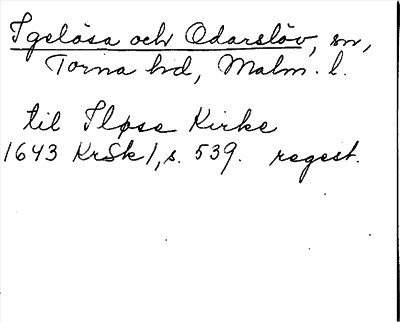 Igelösa och Odarslöv, sn,
Torna hd, Malm. l.
til Iløse Kirke
1643 KrSk 1, s. 539. regest.